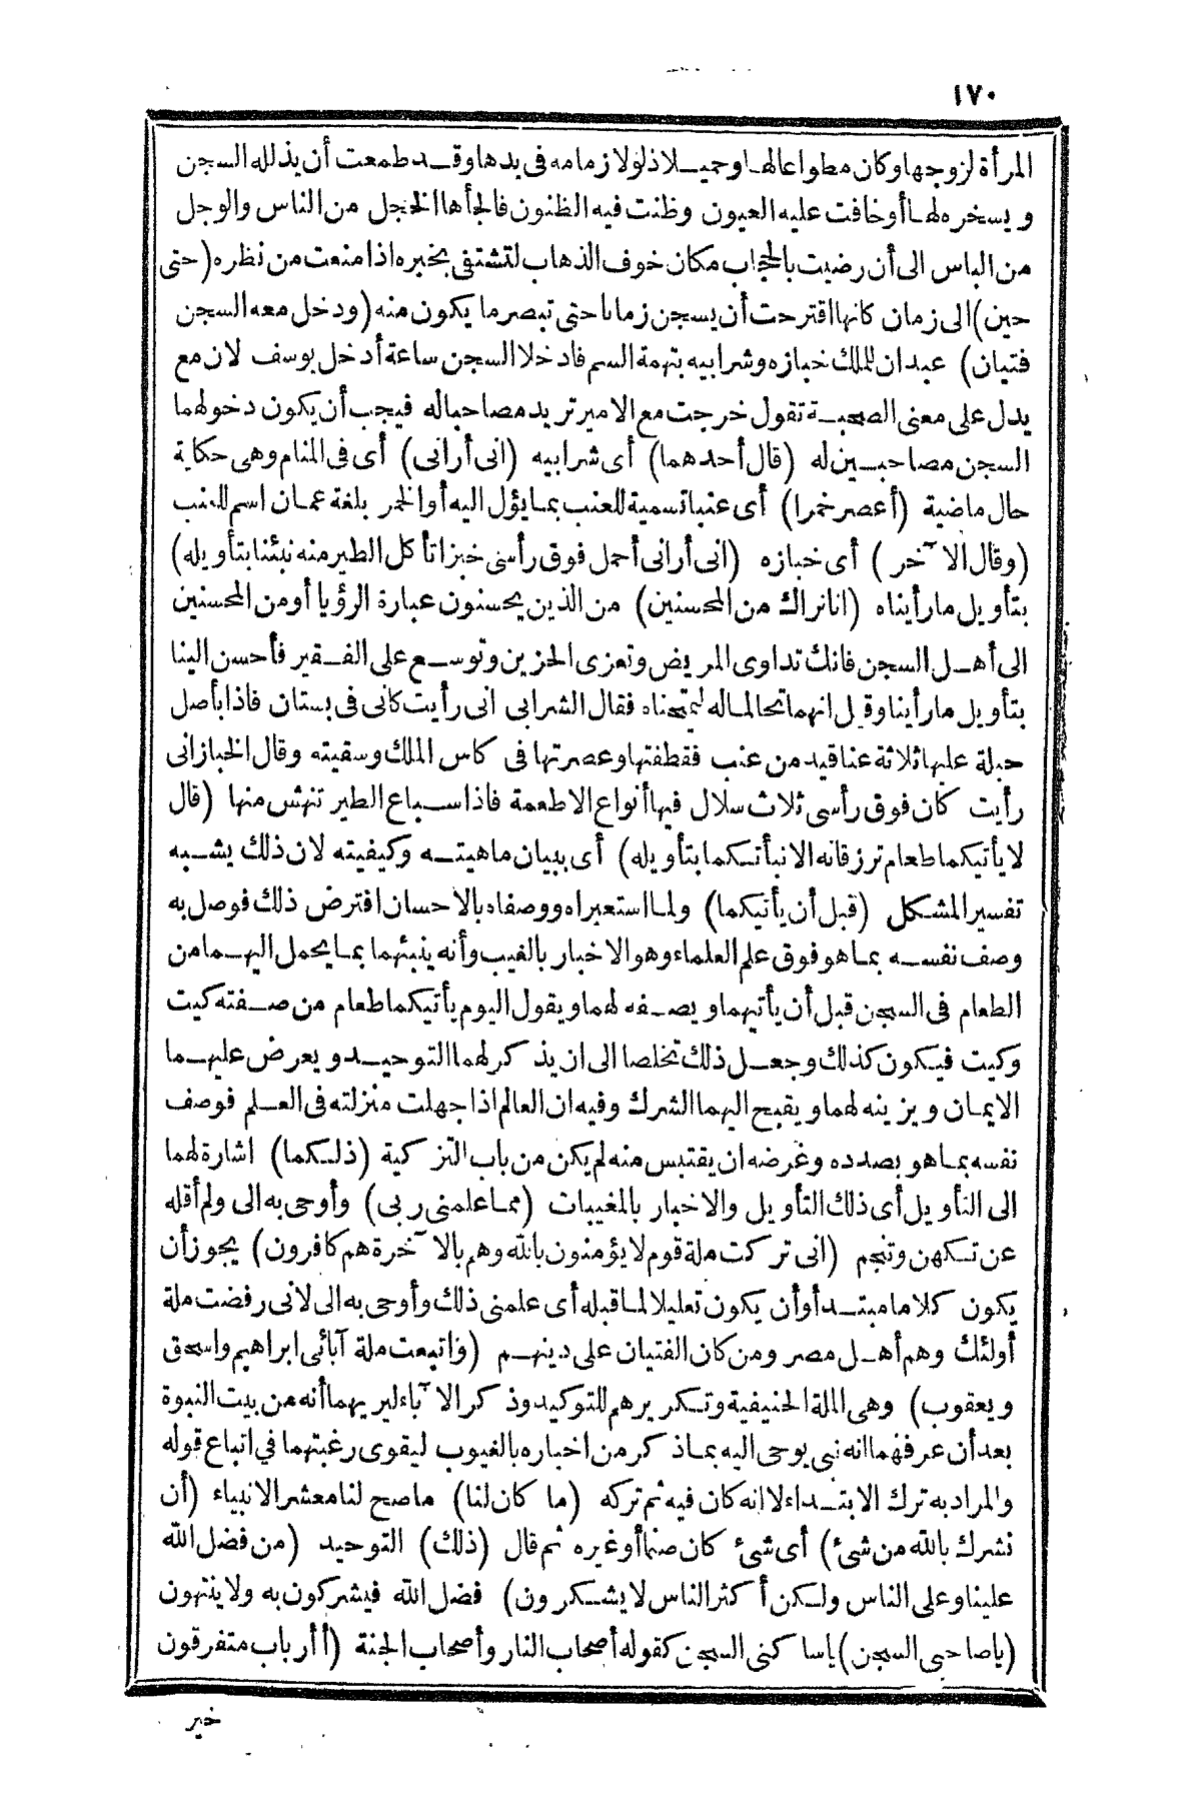 ١٧٠
المرأة لزوجها وكان مطواعا لها وحميلا ذلولا زمامه فى يدها وقد طمعت أن يذلله السجن
ويسخره لها أو خافت عليه العيون وظنت فيه الظنون فالجأها الخجل من الناس والوجل
من الباس الى أن رضيت بالحجاب مكان خوف الذهاب لتشتفى بخبره اذا منعت من نظره (حتى
حين) الى زمان كانها اقترحت أن يسجن زمانا حتى تبصر ما يكون منه (ودخل معه السجن
فتيان) عبدان للملك خبازه وشرابيه بتهمة السم فادخلا السجن ساعة أدخل يوسف لان مع
يدل على معنى الصحبة تقول خرجت مع الامير تريد مصاحبا له فيجب أن يكون دخولهما
السجن مصاحبين له (قال أحدهما) أى شرابيه (انى أرانى) أى فى المنام وهى حكاية
حال ماضية (أعصر خمرا) أى عنبا تسمية للعنب بما يؤل اليه أو الخمر بلغة عمان اسم للعنب
(وقال الآخر) أى خبازه (انى أرانى أحمل فوق رأسى خبزا تأكل الطير منه نبئنا بتأويله)
بتأويل ما رأيناه (انا نراك من المحسنين) من الذين يحسنون عبارة الرؤيا أو من المحسنين
الى أهل السجن فانك تداوى المريض وتعزى الحزين وتوسع على الفقير فأحسن الينا
بتأويل ما رأينا وقيل انهما تحالما له ليمتحناه فقال الشرابى انى رأيت كانى فى بستان فاذا بأصل
حبلة عليها ثلاثة عناقيد من عنب فقطفتها وعصرتها فى كاس الملك وسقيته وقال الخباز انى
رأيت كان فوق رأسى ثلاث سلال فيها أنواع الاطعمة فاذا سباع الطير تنهش منها (قال
لا يأتيكما طعام ترزقانه الا نبأتكما بتأويله) أى ببيان ماهيته وكيفيته لان ذلك يشبه
تفسير المشكل (قبل أن يأتيكما) ولما استعبراه ووصفاه بالاحسان افترض ذلك فوصل به
وصف نفسه بما هو فوق علم العلماء وهو الاخبار بالغيب وأنه ينبئهما بما يحمل اليهما من
الطعام فى السجن قبل أن يأتيهما ويصفه لهما ويقول اليوم يأتيكما طعام من صفته كيت
وكيت فيكون كذلك وجعل ذلك تخلصا الى ان يذكر لهما التوحيد ويعرض عليهما
الايمان ويزينه لهما ويقبح اليهما الشرك وفيه ان العالم اذا جهلت منزلته فى العلم فوصف
نفسه بما هو بصدده وغرضه ان يقتبس منه لم يكن من باب التزكية (ذلكما) اشارة لهما
الى التأويل أى ذلك التأويل والاخبار بالمغيبات (مما علمنى ربى) وأوحى به الى ولم أقله
عن تكهن وتنجم (انى تركت ملة قوم لا يؤمنون بالله وهم بالآخرة هم كافرون) يجوز أن
يكون كلاما مبتدأ وأن يكون تعليلا لما قبله أى علمنى ذلك وأوحى به الى لانى رفضت ملة
أولئك وهم أهل مصر ومن كان الفتيان على دينهم (واتبعت ملة آبائى ابراهيم واسحق
ويعقوب) وهى الملة الحنيفية وتكريرهم للتوكيد وذكر الآباء ليريهما أنه من بيت النبوة
بعد أن عرفهما انه نبى يوحى اليه بما ذكر من اخباره بالغيوب ليقوى رغبتهما في اتباع قوله
والمراد به ترك الابتداء لا انه كان فيه ثم تركه (ما كان لنا) ما صح لنا معشر الانبياء (أن
نشرك بالله من شىء) أى شىء كان صنما أو غيره ثم قال (ذلك) التوحيد (من فضل الله
علينا وعلى الناس ولكن أكثر الناس لا يشكرون) فضل الله فيشركون به ولا ينتهون
(يا صاحبى السجن) يا ساكنى السجن كقوله أصحاب النار وأصحاب الجنة (أأرباب متفرقون
خير